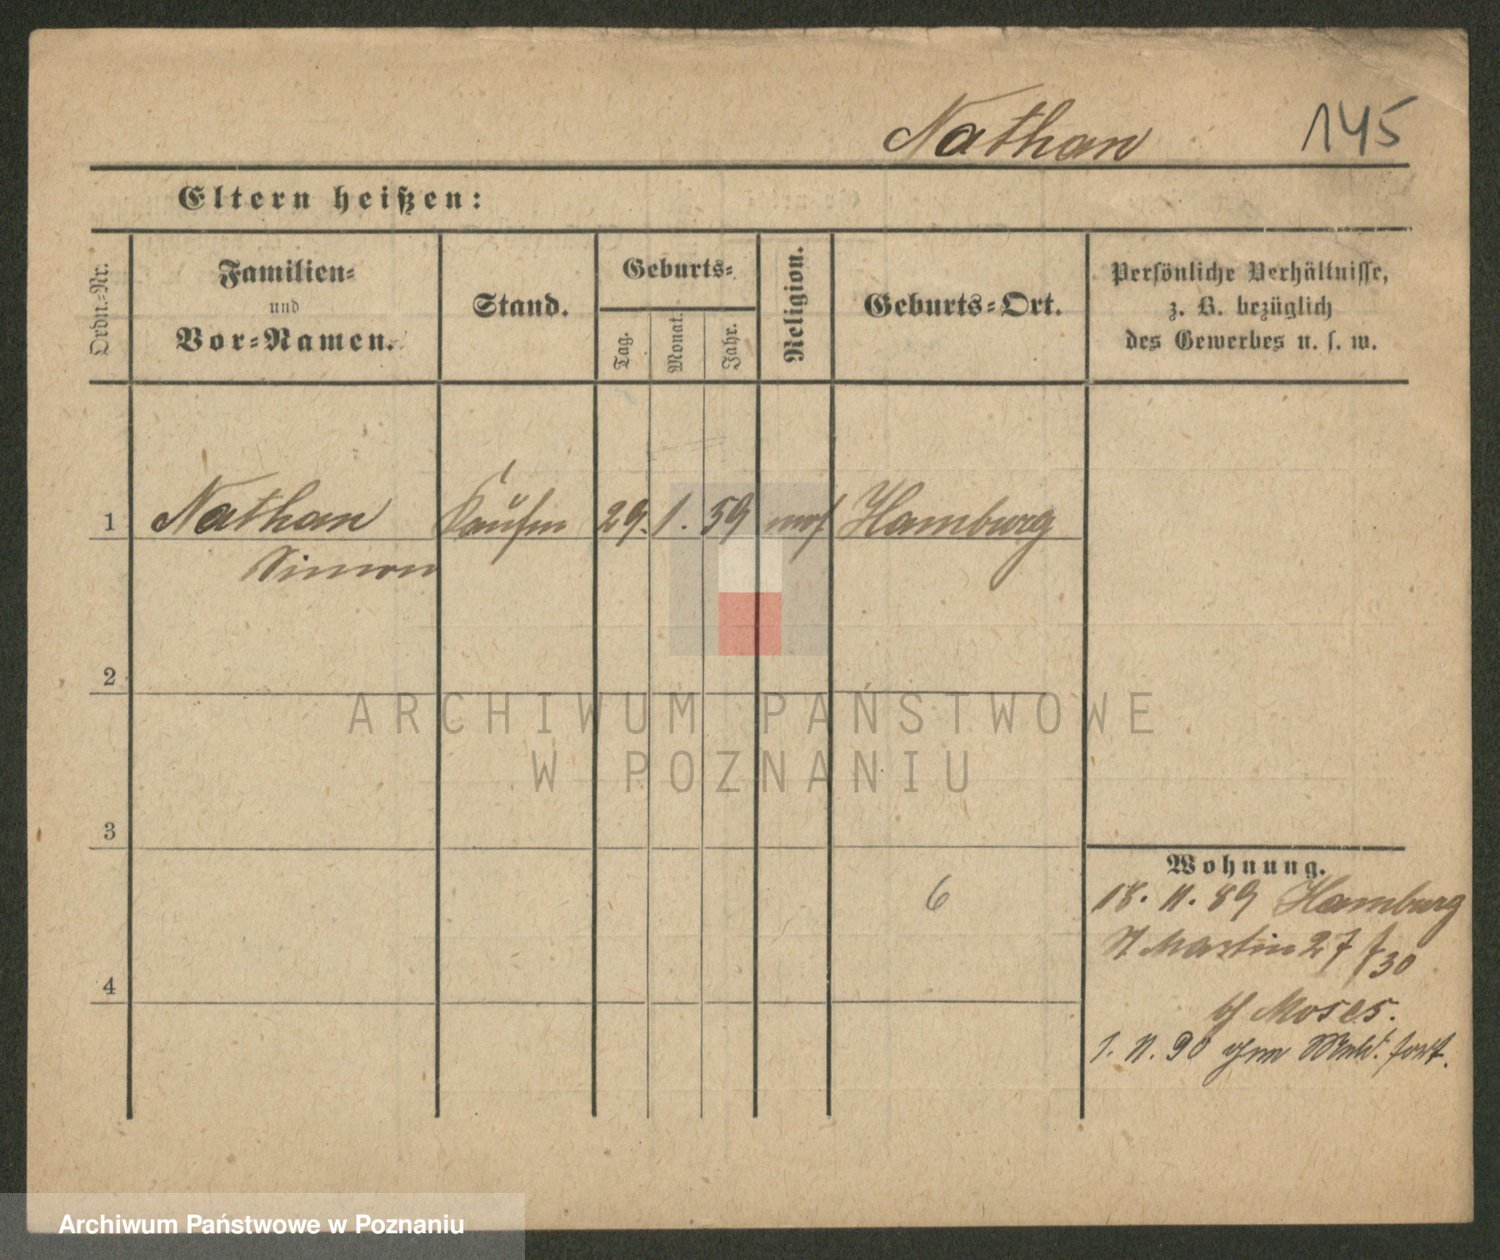 Nathan 145
Eltern heißen:
Ordn.-Nr.
Familien-
und
Vor-Namen.
Stand.
Geburts-
Tag.
Monat.
Jahr.
Religion.
Geburts-Ort.
Persönliche Verhältnisse,
z. B. bezüglich
des Gewerbes u. s. w.
1 Nathan Kaufm 29. 1. 59 mos Hamburg
Simon
2
ARCHIWUM PAŃSTWOWE
W POZNANIU
3
Wohnung.
6
18. 11. 89 Hamburg
St Martin 27 30
4
Moses.
1. 11. 90 fort.
Archiwum Państwowe w Poznaniu